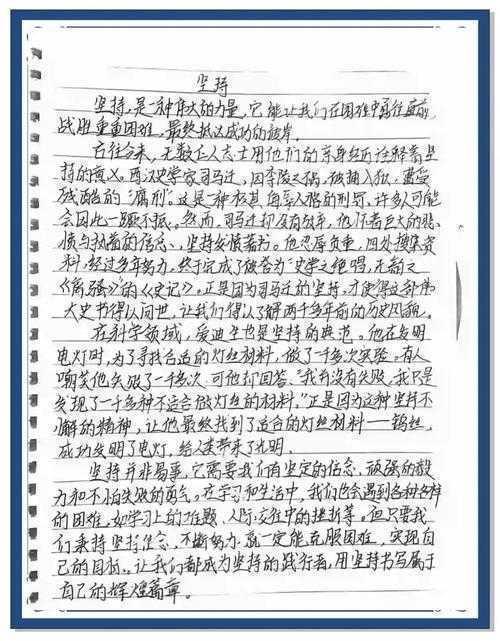 坚持
坚持,是一种伟大的力量,它能让我们在困难中勇往直前,
战胜重重困难,最终抵达成功的彼岸。
古往今来,无数仁人志士用他们的亲身经历诠释着坚
持的意义。西汉史学家司马迁,因李陵之祸,被捕入狱,遭受
残酷的“腐刑”。这是一种极其侮辱人格的刑罚,许多人可能
会因此一蹶不振。然而,司马迁却没有放弃,他怀着巨大的悲
愤与执着的信念,坚持发愤著书。他忍辱负重,四处搜集资
料,经过多年努力,终于完成了被誉为“史学之绝唱,无韵之
《离骚》”的《史记》。正是因为司马迁的坚持,才使得这部伟
大史书得以问世,让我们得以了解两千多年前的历史风貌。
在科学领域,爱迪生也是坚持的典范。他在发明
电灯时,为了寻找合适的灯丝材料,做了一千多次实验。有人
嘲笑他失败了一千多次,可他却回答:“我并没有失败,我只是
发现了一千多种不适合做灯丝的材料。”正是因为这种坚持不
懈的精神,让他最终找到了适合的灯丝材料——钨丝,
成功发明了电灯,给人类带来了光明。
坚持并非易事,它需要我们有坚定的信念、顽强的毅
力和不怕失败的勇气。在学习和生活中,我们也会遇到各种各样
的困难,如学习上的难题、人际交往中的挫折等。但只要我
们秉持坚持信念,不断努力,就一定能克服困难,实现自
己的目标。让我们都成为坚持的践行者,用坚持书写属于
自己的辉煌篇章。